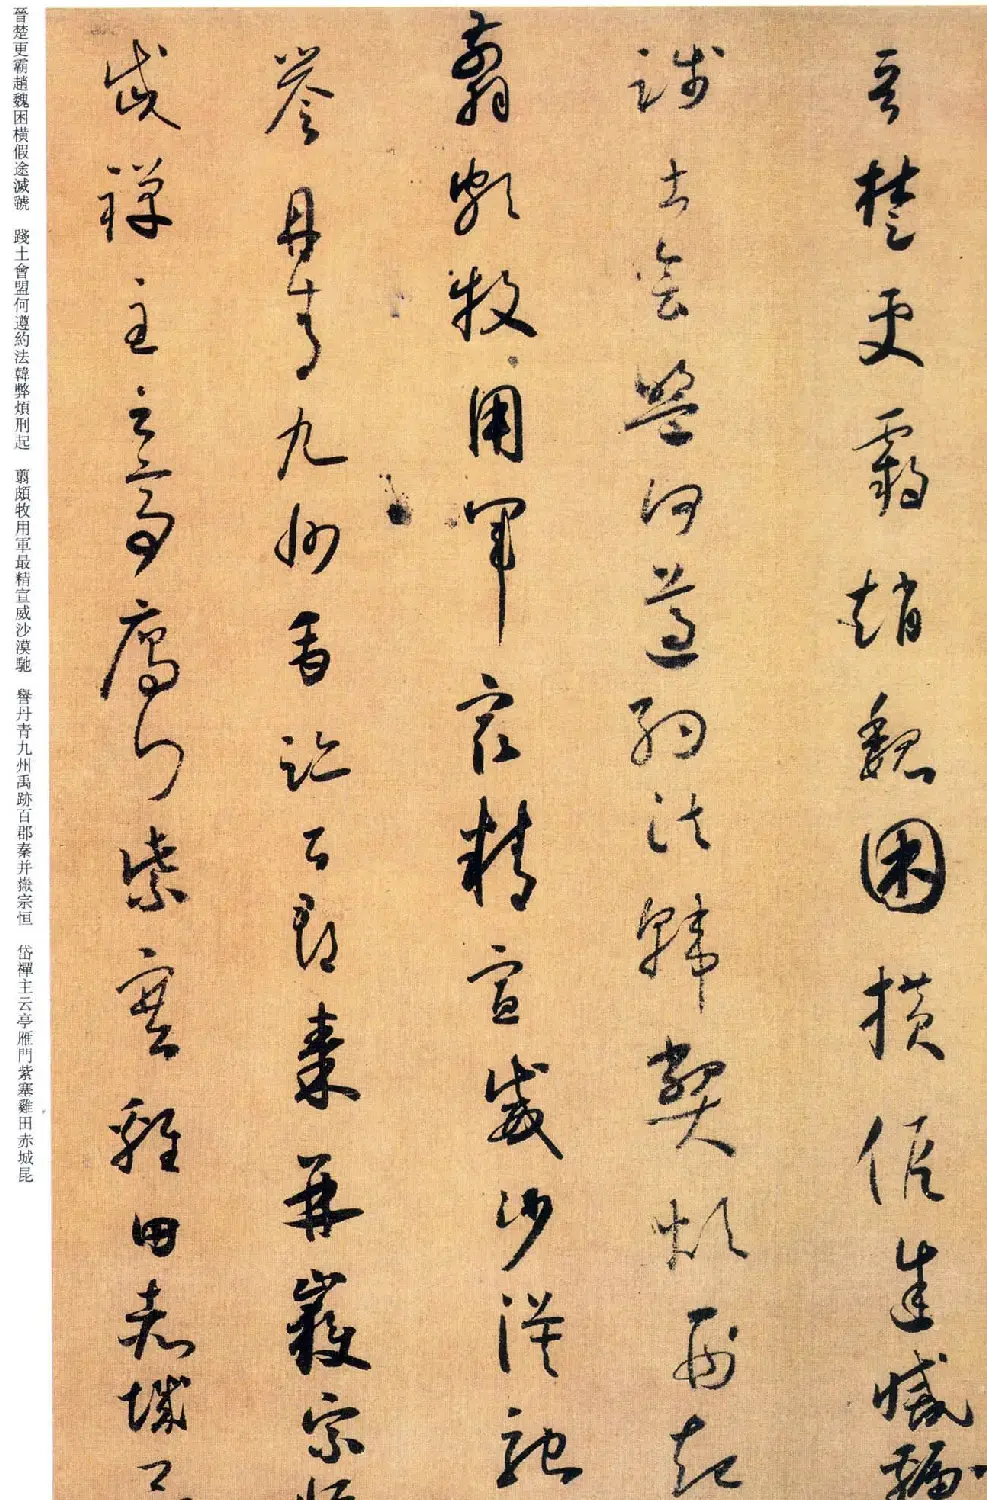 晉楚更霸趙魏困橫假途滅虢
踐土會盟何遵約法韓弊煩刑起
翦頗牧用軍最精宣威沙漠馳
譽丹青九州禹跡百郡秦并嶽宗恒
岱禪主云亭雁門紫塞雞田赤城昆
晉楚更霸趙魏困橫假途滅虢 踐土會盟何遵約法韓弊煩刑起 翦頗牧用軍最精宣威沙漠馳 譽丹青九州禹跡百郡秦并嶽宗恒 岱禪主云亭雁門紫塞雞田赤城昆